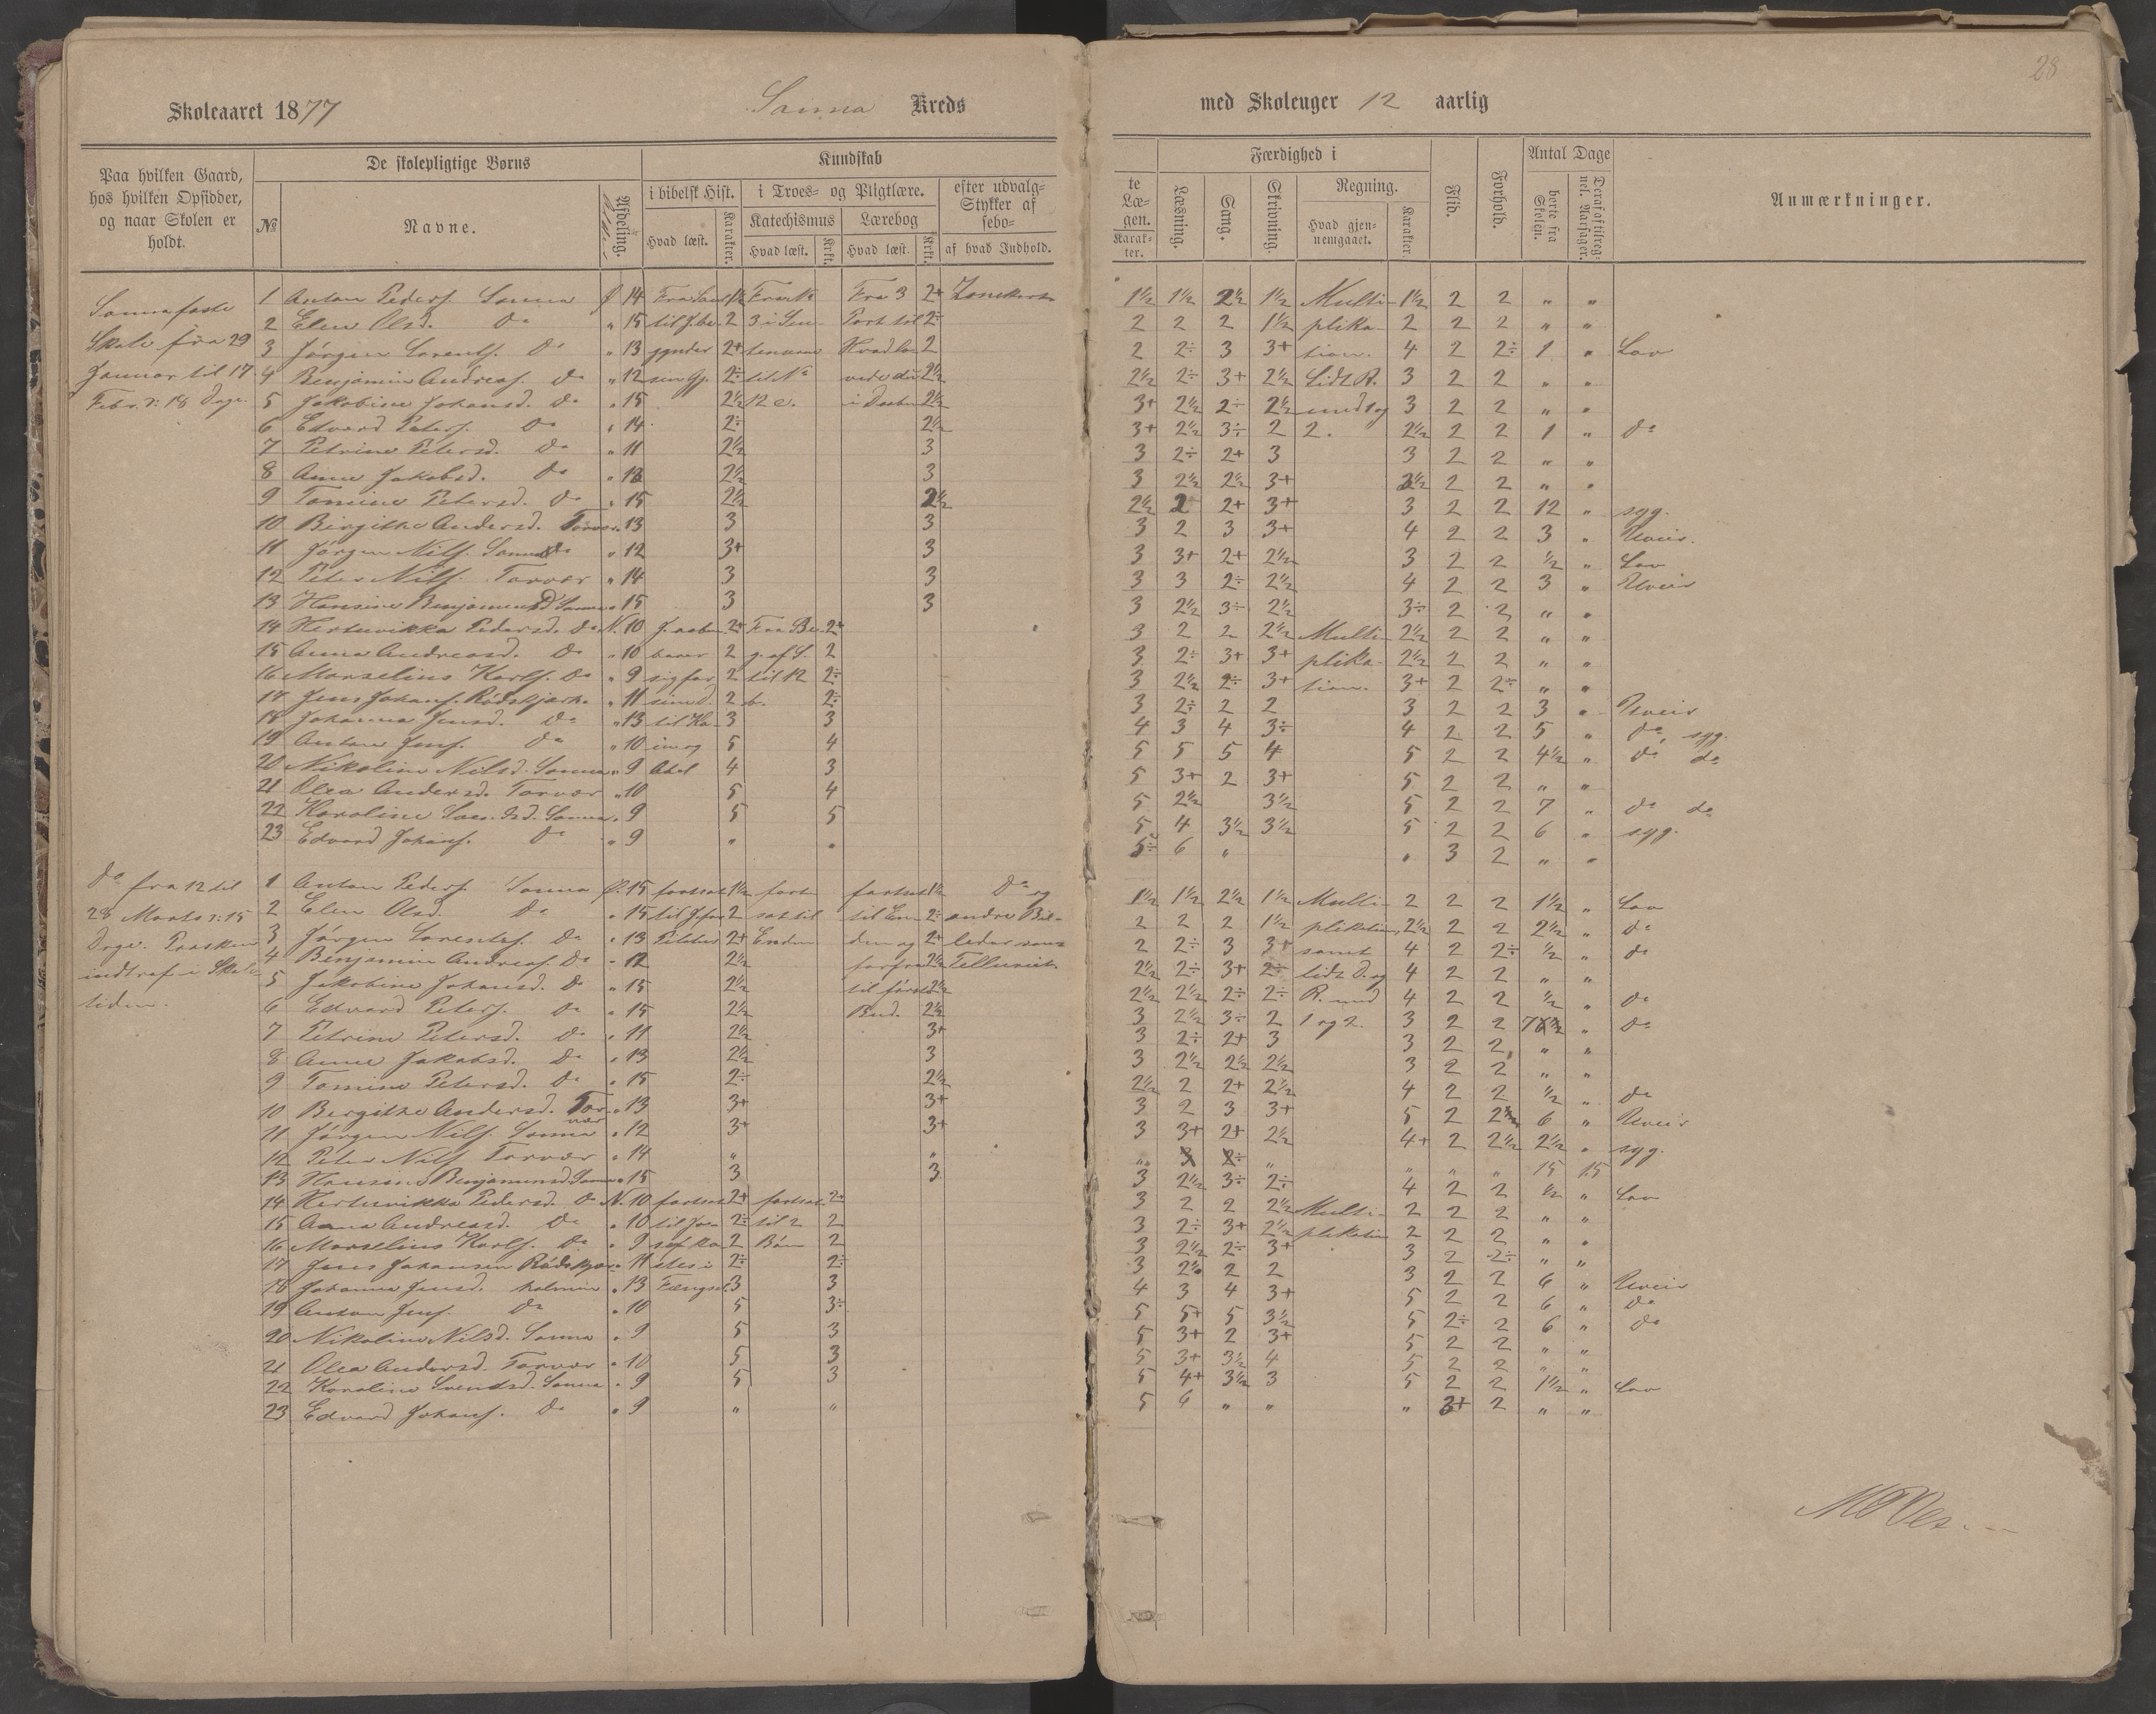 28
Skoleaaret 1877 Sanna Kreds med Skoleuger 12 aarlig
Paa hvilken Gaard, hos hvilken Opsidder, og naar Skolen er holdt.
De skolepligtige Børns
№ Navne. Afdeling.
Kundskab
i bibelsk Hist. i Troes- og Pligtlære. efter udvalg-
Hvad læst. Karakter. Katechismus Lærebog Stykker af
Hvad læst. Krkt. Hvad læst. Krkt. sebo-
af hvad Indhold.
te Læ- gen. Karak- ter.
Færdighed i
Læsning. Sang. Skrivning. Regning.
Hvad gjen- nemgaaet. Karakter.
Flid. Forhold.
Antal Dage
borte fra Skolen. Deraf af tilreg- nel. Aarsager.
Anmærkninger.
Sanna faste
Skole fra 29
Januar til 17
Febr. : 18 Dage.
1 Anton Peders. Sanna Ø 14 1½ Fra 3 2+ 1½ 1½ 2½ 1½ Multi- 1½ 2 2 " "
2 Elen Olsd. do " 15 2 2÷ 2 2 2 1½ plika- 2 2 2 " "
3 Jørgen Lorents. do " 13 2+ 2 2 2÷ 3 3+ tion. 4 2 2÷ 1 " Lov
4 Benjamin Andreas. do " 12 2÷ 2½ 2½ 2÷ 3+ 2½ Lidt R. 3 2 2 " "
5 Jakobine Johansd. do " 15 2½ 12 e. 2½ 3+ 2½ 2÷ 2½ med 1 og 3 2 2 " "
6 Edvard Peters. do " 14 2÷ 2½ 3+ 2½ 3÷ 2 2. 2½ 2 2 1 " do
7 Petrine Petersd. do " 11 2½ 3 3 2÷ 2+ 3 3 2 2 " "
8 Anne Jakobsd. do " 13 2½ 3 3 2½ 2½ 3+ 3½ 2 2 " "
9 Tomine Petersd. do " 15 2½ 2½ 2½ 2 2+ 3+ 3 2 2 12 " syg.
10 Birgithe Andersd. Torvær " 13 3 3 3 2 3 3+ 4 2 2 3 " Uveir.
11 Jørgen Nils. Sanna " 12 3+ 3 3 3+ 2+ 2½ 3 2 2 ½ " Lov
12 Peter Nils. Torvær " 14 3 3 3 3 2÷ 2½ 4 2 2 3 " Uveir
13 Hansine Benjaminsd. Sanna " 15 3 3 3 2½ 3÷ 2½ 3÷ 2 2 " "
14 Hertuvikka Pedersd. do N. 10 2+ 2+ 3 2 2 2½ Multi- 2½ 2 2 " "
15 Anna Andreasd. do " 10 2 2 3 2÷ 3+ 3+ plika- 2½ 2 2 " "
16 Marselius Karls. do " 9 2 til 12 2÷ 3 2½ 2÷ 3+ tion. 3+ 2 2÷ " "
17 Jens Johans. Rødskjærh. " 11 2 b. 2÷ 3 2÷ 2 2 3 2 2 3 " Uveir
18 Johanna Jensd. do " 13 til Ka- 3 3 4 3 4 3÷ 4 2 2 5 " do, syg.
19 Anton Jens. do " 10 in og 5 4 5 5 5 4 5 2 2 4½ " do do
20 Nikoline Nilsd. Sanna " 9 Abel 4 3 5 3+ 2 3+ 5 2 2 " "
21 Olea Andersd. Torvær " 10 5 4 5 2½ 3½ 5 2 2 7 " do do
22 Karoline Svendsd. Sanna " 9 5 5 5 4 3½ 3½ 5 2 2 6 " syg.
23 Edvard Johans. do " 9 " " 5÷ 6 " " 3 2 " "
do fra 12 til
28 Marts : 15
Dage. Paasken
indtraf i Skole-
tiden.
1 Anton Peders. Sanna Ø. 15 fortsat 1½ fort- fortsat 1½ do og 1½ 1½ 2½ 1½ Multi- 2 2 2 1½ " Lov
2 Elen Olsd. do " 15 2 sat til til En- 2÷ andre Bil- 2 2 2 1½ plikation, 2½ 2 2 2½ " do
3 Jørgen Lorents. do " 13 Pilatus 2+ Enden den og 2+ leder 2 2÷ 3 3+ samt 4 2 2÷ ½ " do
4 Benjamin Andreas. do " 12 2½ forfra 2½ 2½ 2÷ 3+ 2÷ lidt D. og 4 2 2 " "
5 Jakobine Johansd. do " 15 2½ til første 2½ 2½ 2½ 2÷ 2÷ R. med 4 2 2 ½ " do
6 Edvard Peters. do " 15 2½ Bud. 2½ 3 2½ 3÷ 2 1 og 2. 3 2 2 " do
7 Petrine Petersd. do " 11 2½ 3+ 3 2÷ 2+ 3 3 2 2 " "
8 Anne Jakobsd. do " 13 2½ 3 3 2½ 2½ 2½ 3 2 2 " "
9 Tomine Petersd. do " 15 2÷ 2½ 2½ 2 2+ 2½ 4 2 2 ½ " do
10 Bergithe Andersd. Torvær " 13 3+ 3+ 3 2 3 3+ 5 2 2½ 6 " Uveir
11 Jørgen Nils. Sanna " 12 3+ 3+ 3 3+ 2+ 2½ 4+ 2 2½ 2½ " syg.
12 Peter Nils. Torvær " 14 " " " " " " " 15 15
13 Hansine Benjaminsd. Sanna " 15 3 3 3 2½ 3÷ 2÷ 4 2 2 ½ " Lov
14 Hertuvikka Pedersd. do N. 10 fortsat 2+ fortsat 2+ 3 2 2 2½ Multi- 2 2 2 " "
15 Anna Andreasd. do " 10 2÷ til 2 2 3 2÷ 3+ 2½ plikation 2 2 2 " "
16 Marselius Karls. do " 9 2 Bøn 2 3 2½ 2÷ 3+ 3 2 2÷ " "
17 Jens Johansen Rødskjær- " 11 2÷ 2÷ 3 2½ 2 2 3 2 2 6 " Uveir
18 Johanna Jensd. holmen " 13 Fængsel 3 3 4 3 4 3+ 5 2 2 6 " do
19 Anton Jens. do " 10 5 3÷ 5 5+ 5 3½ 5 2÷ 2 6 " do
20 Nikoline Nilsd. Sanna " 9 5 3 5 3+ 2 3+ 5 2 2 " "
21 Olea Andersd. Torvær " 10 5 3 5 3+ 3½ 4 5 2 2 " "
22 Karoline Svendsd. Sanna " 9 5 3 5 4+ 3½ 3 5 2 2 1½ " Lov
23 Edvard Johans. do " 9 " " 5 6 " " " 3+ 2 " "